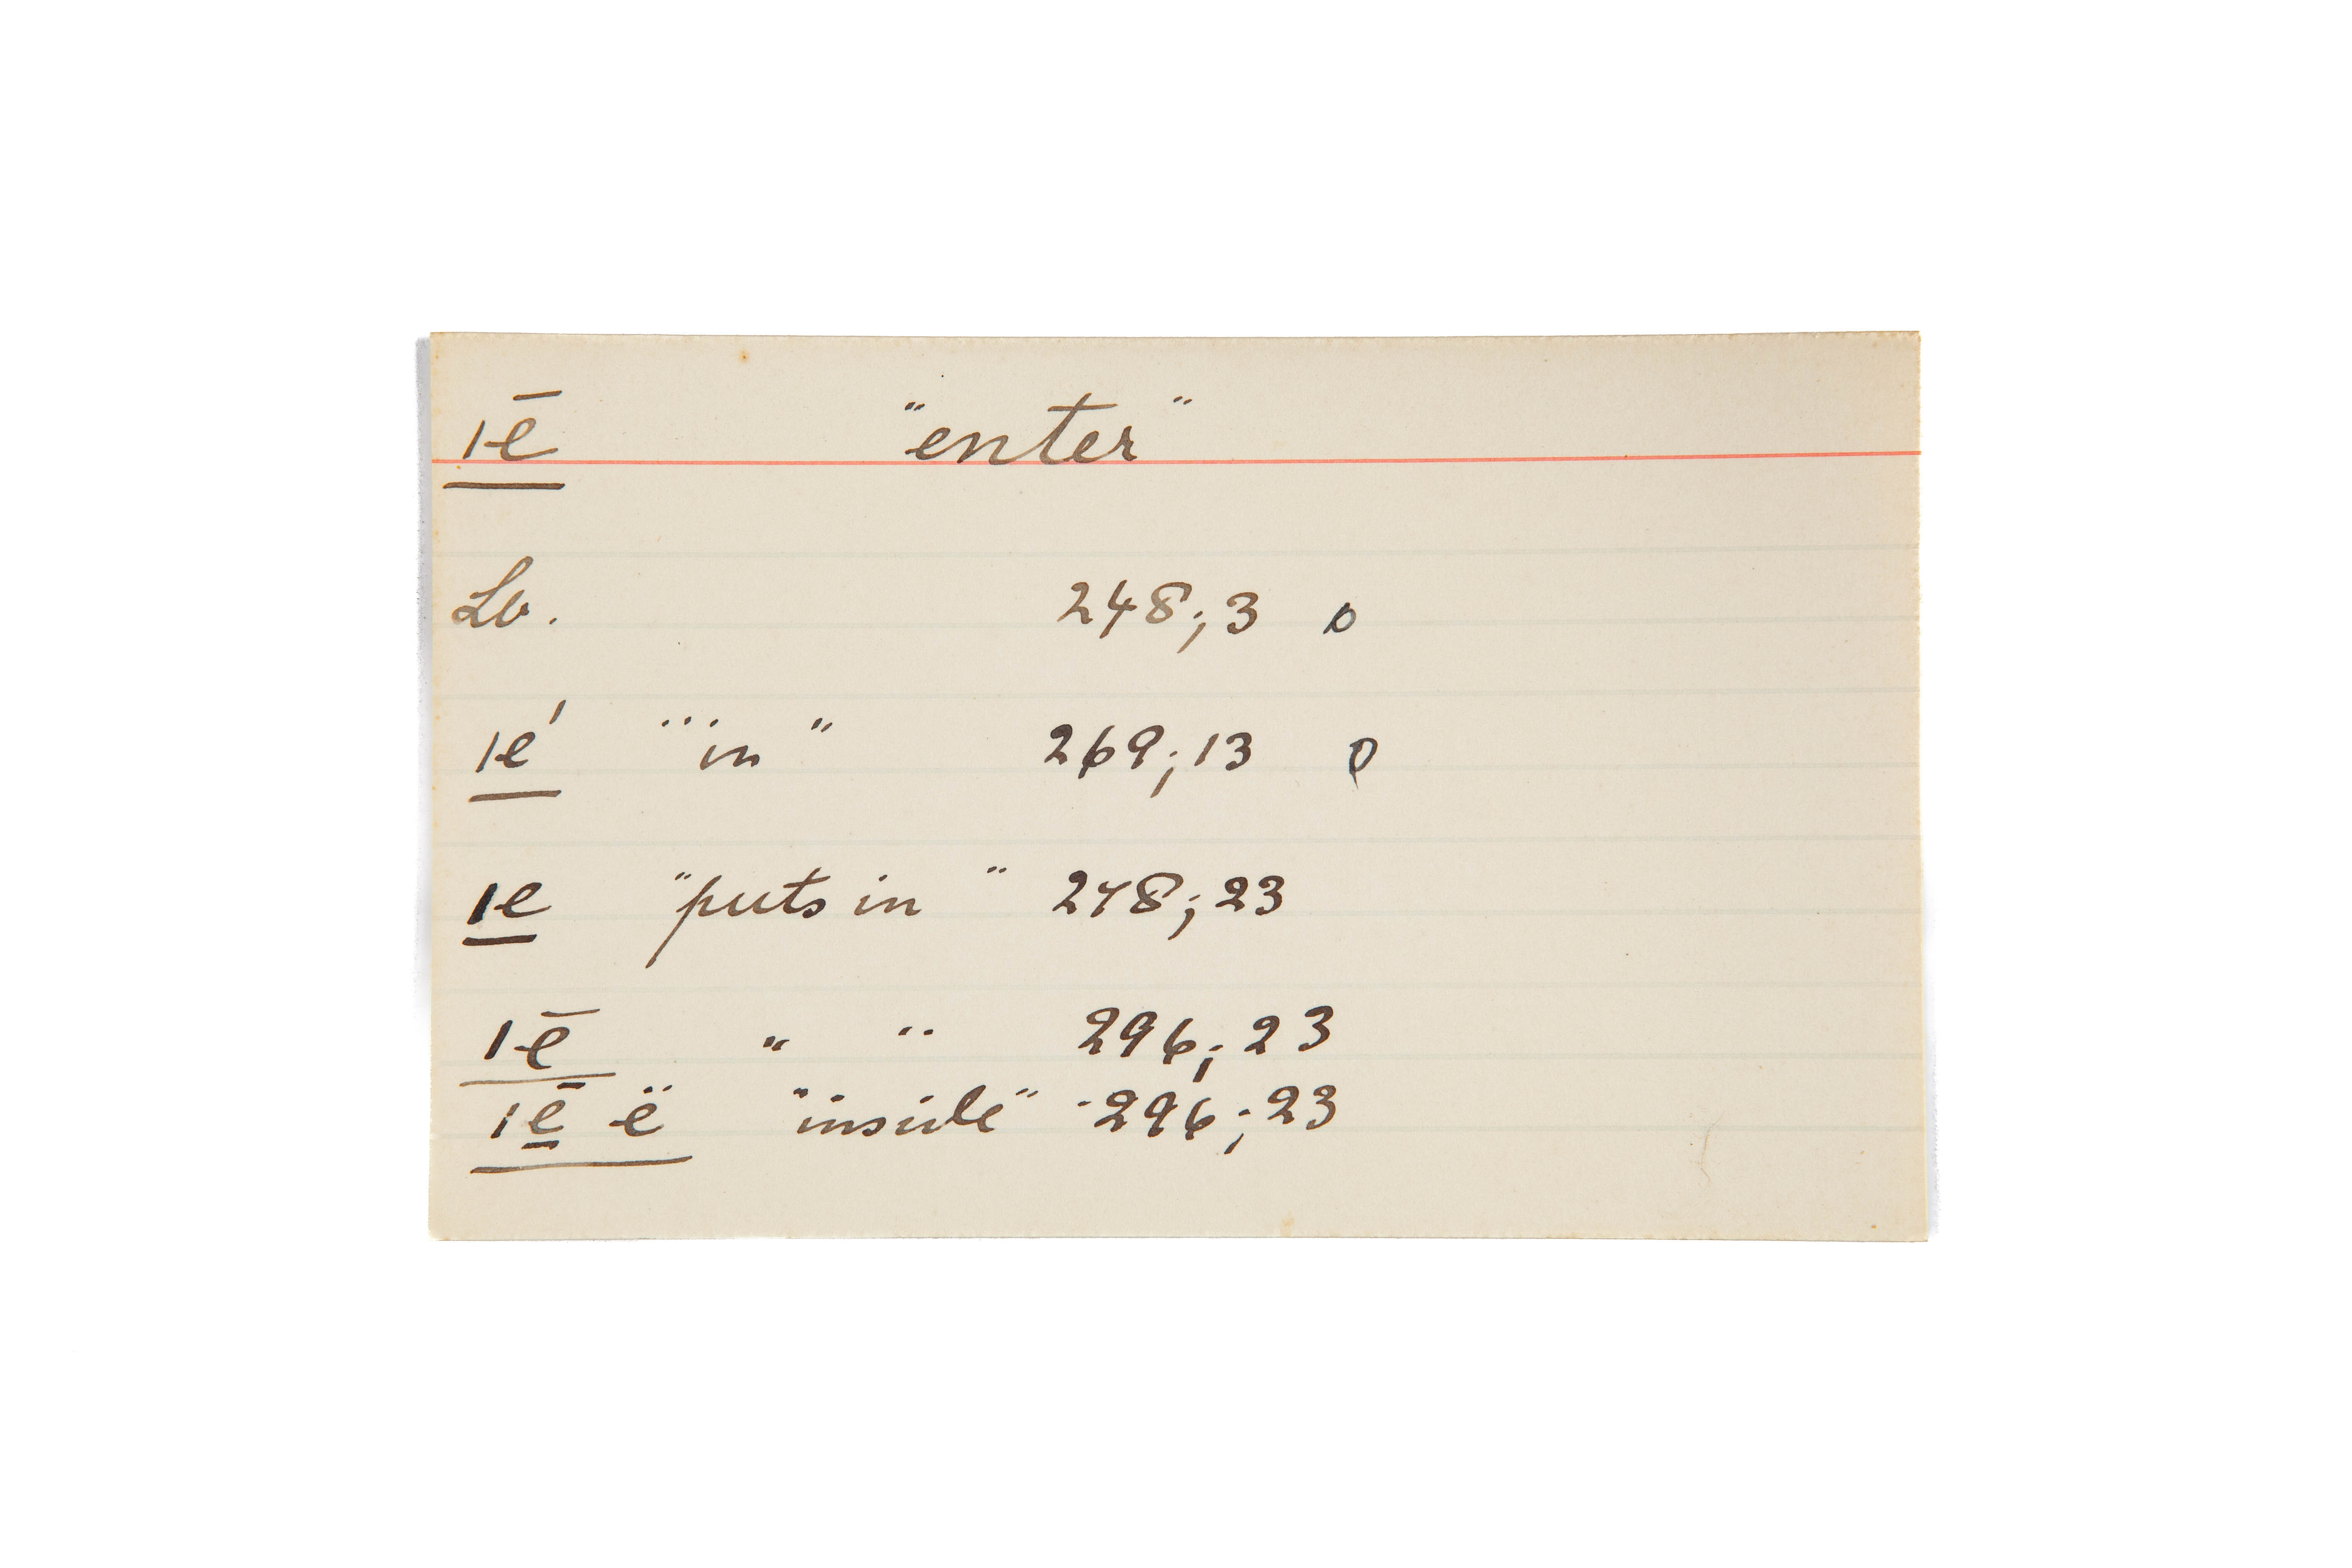 ıē "enter"
Lb. 248;3 o
ıe' "in" 269;13 o
ıe "puts in" 248;23
ıē " " 296;23
ıē ë "inside" 296;23